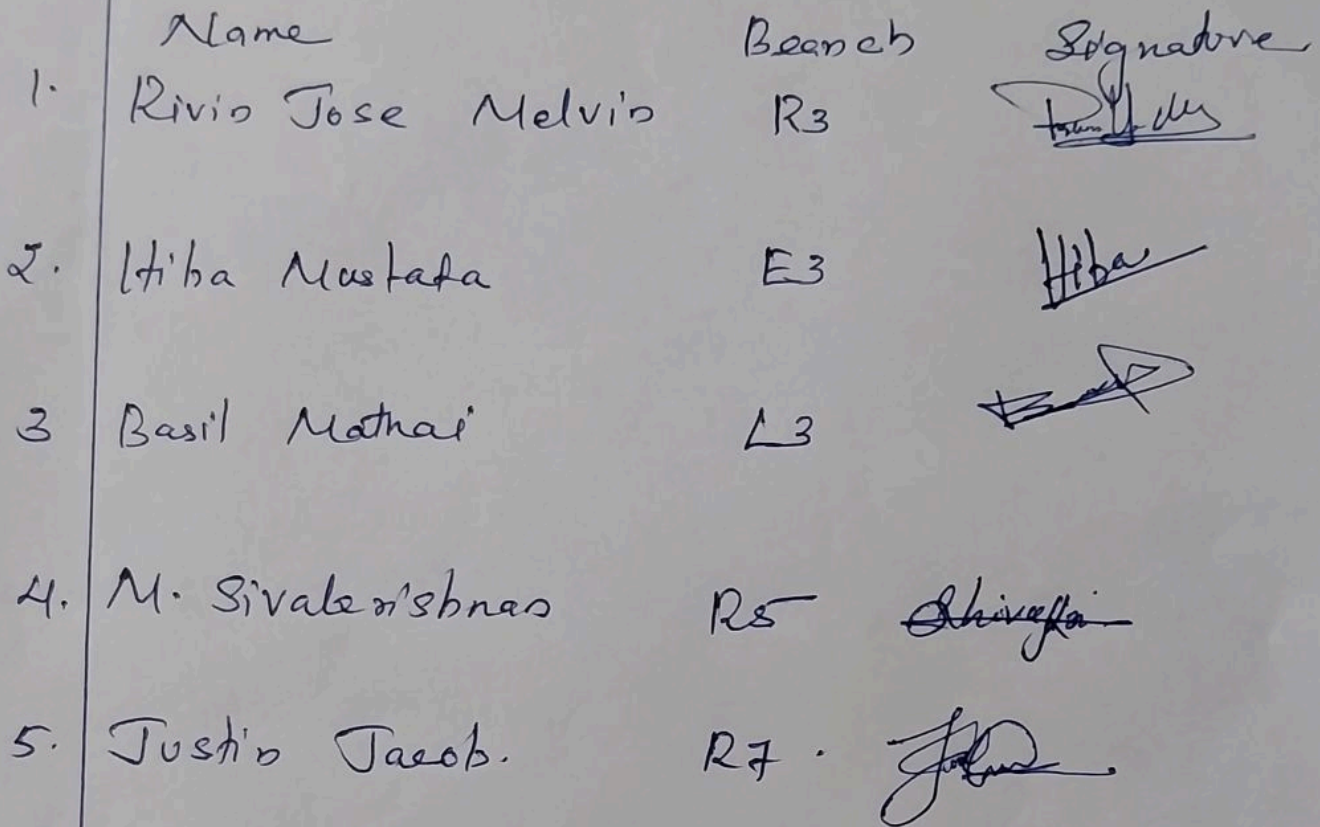 Name Branch Signature
1. Rivin Jose Melvin R3
2. Hiba Mustafa E3 Hiba
3 Basil Mathai L3
4. M. Sivakrishnan R5
5. Justin Jacob. R7.